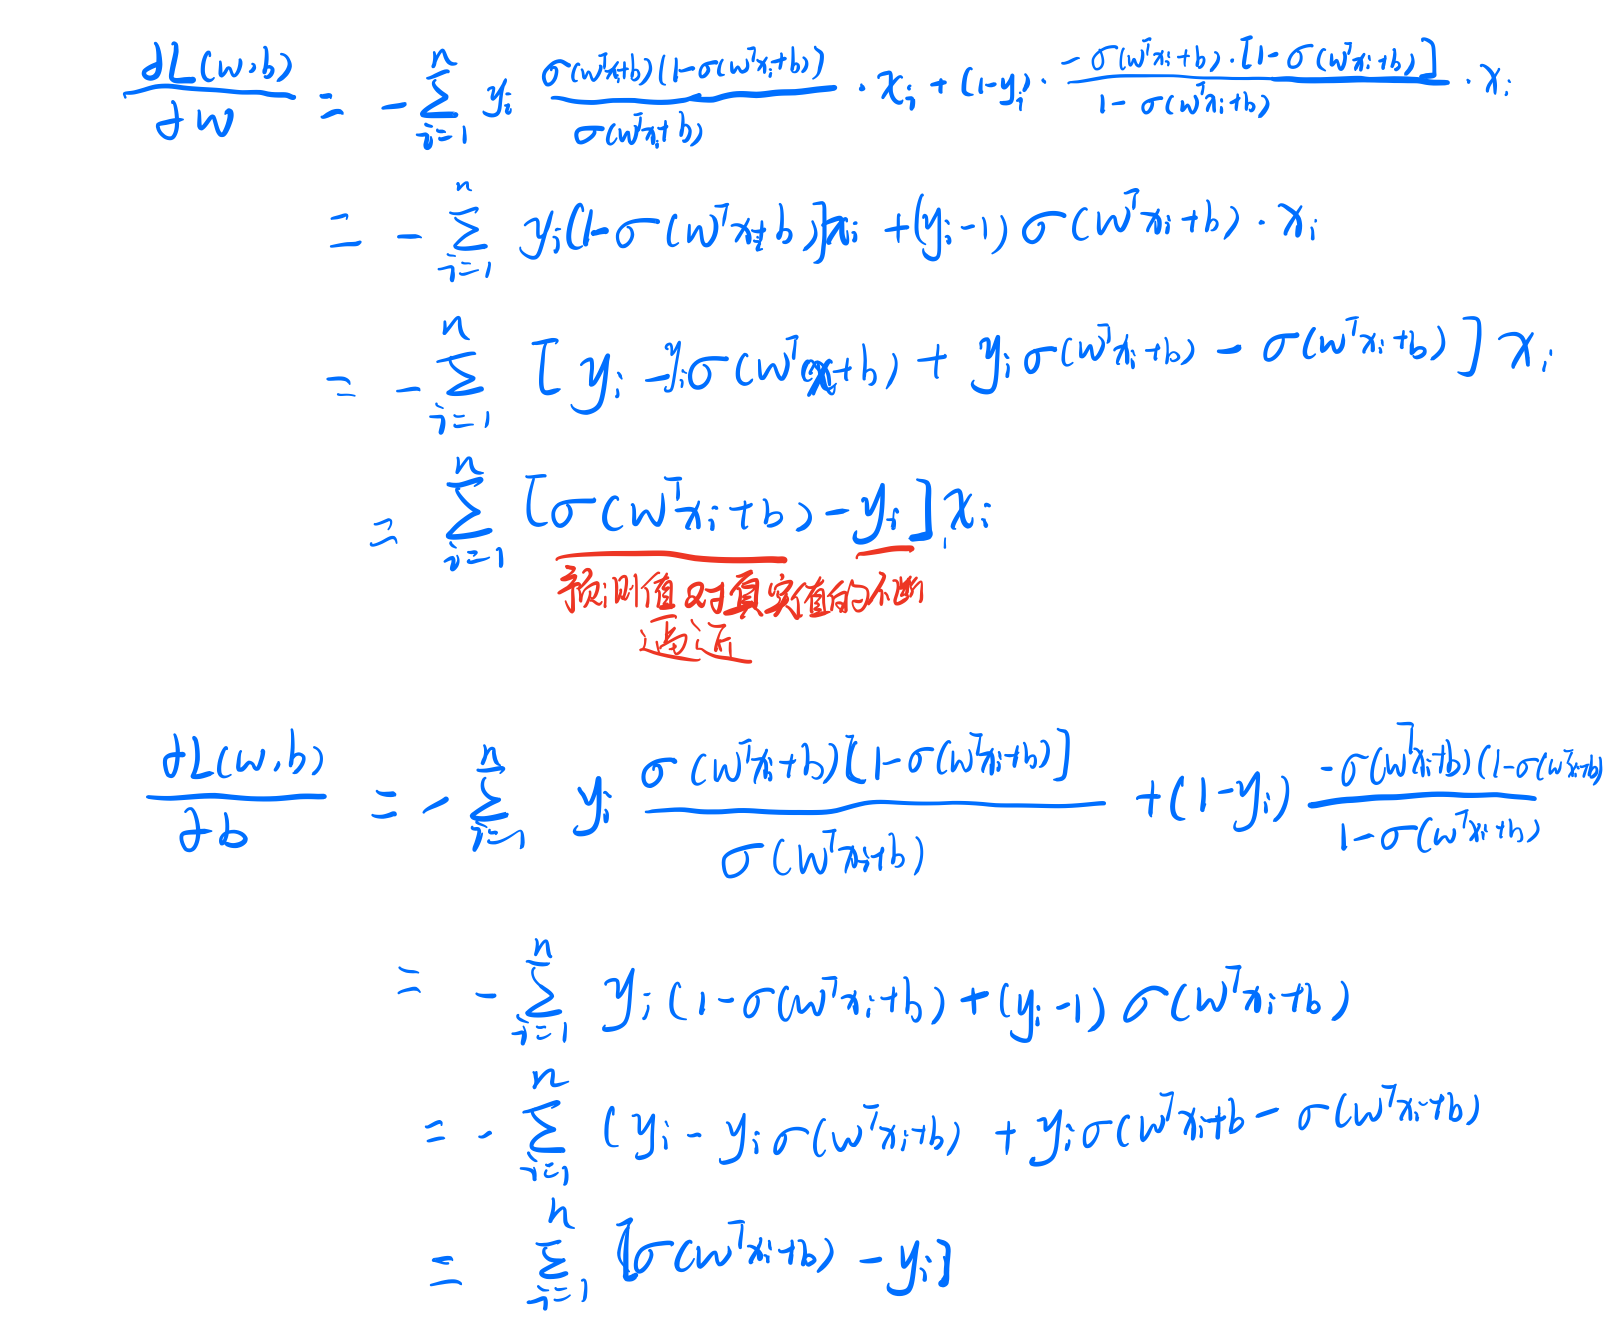 ∂L(w,b)/∂w = -∑_{i=1}^{n} y_i σ(w^T x_i+b)(1-σ(w^T x_i+b))/σ(w^T x_i+b) · x_i + (1-y_i) · -σ(w^T x_i+b)·[1-σ(w^T x_i+b)]/1-σ(w^T x_i+b) · x_i
= -∑_{i=1}^{n} y_i[1-σ(w^T x_i+b)]x_i + (y_i-1) σ(w^T x_i+b) · x_i
= -∑_{i=1}^{n} [y_i - y_i σ(w^T x_i+b) + y_i σ(w^T x_i+b) - σ(w^T x_i+b)] x_i
= ∑_{i=1}^{n} [σ(w^T x_i+b) - y_i] x_i
预测值对真实值的不断
逼近
∂L(w,b)/∂b = -∑_{i=1}^{n} y_i σ(w^T x_i+b)[1-σ(w^T x_i+b)]/σ(w^T x_i+b) + (1-y_i) -σ(w^T x_i+b)(1-σ(w^T x_i+b)/1-σ(w^T x_i+b)
= -∑_{i=1}^{n} y_i (1-σ(w^T x_i+b) + (y_i-1) σ(w^T x_i+b)
= -∑_{i=1}^{n} (y_i - y_i σ(w^T x_i+b) + y_i σ(w^T x_i+b - σ(w^T x_i+b)
= ∑_{i=1}^{n} [σ(w^T x_i+b) - y_i]